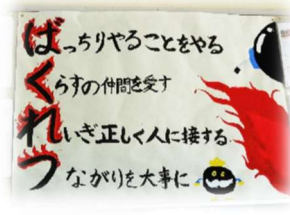 ばっちりやることをやる
くらすの仲間を愛す
れいぎ正しく人に接する
つながりを大事に